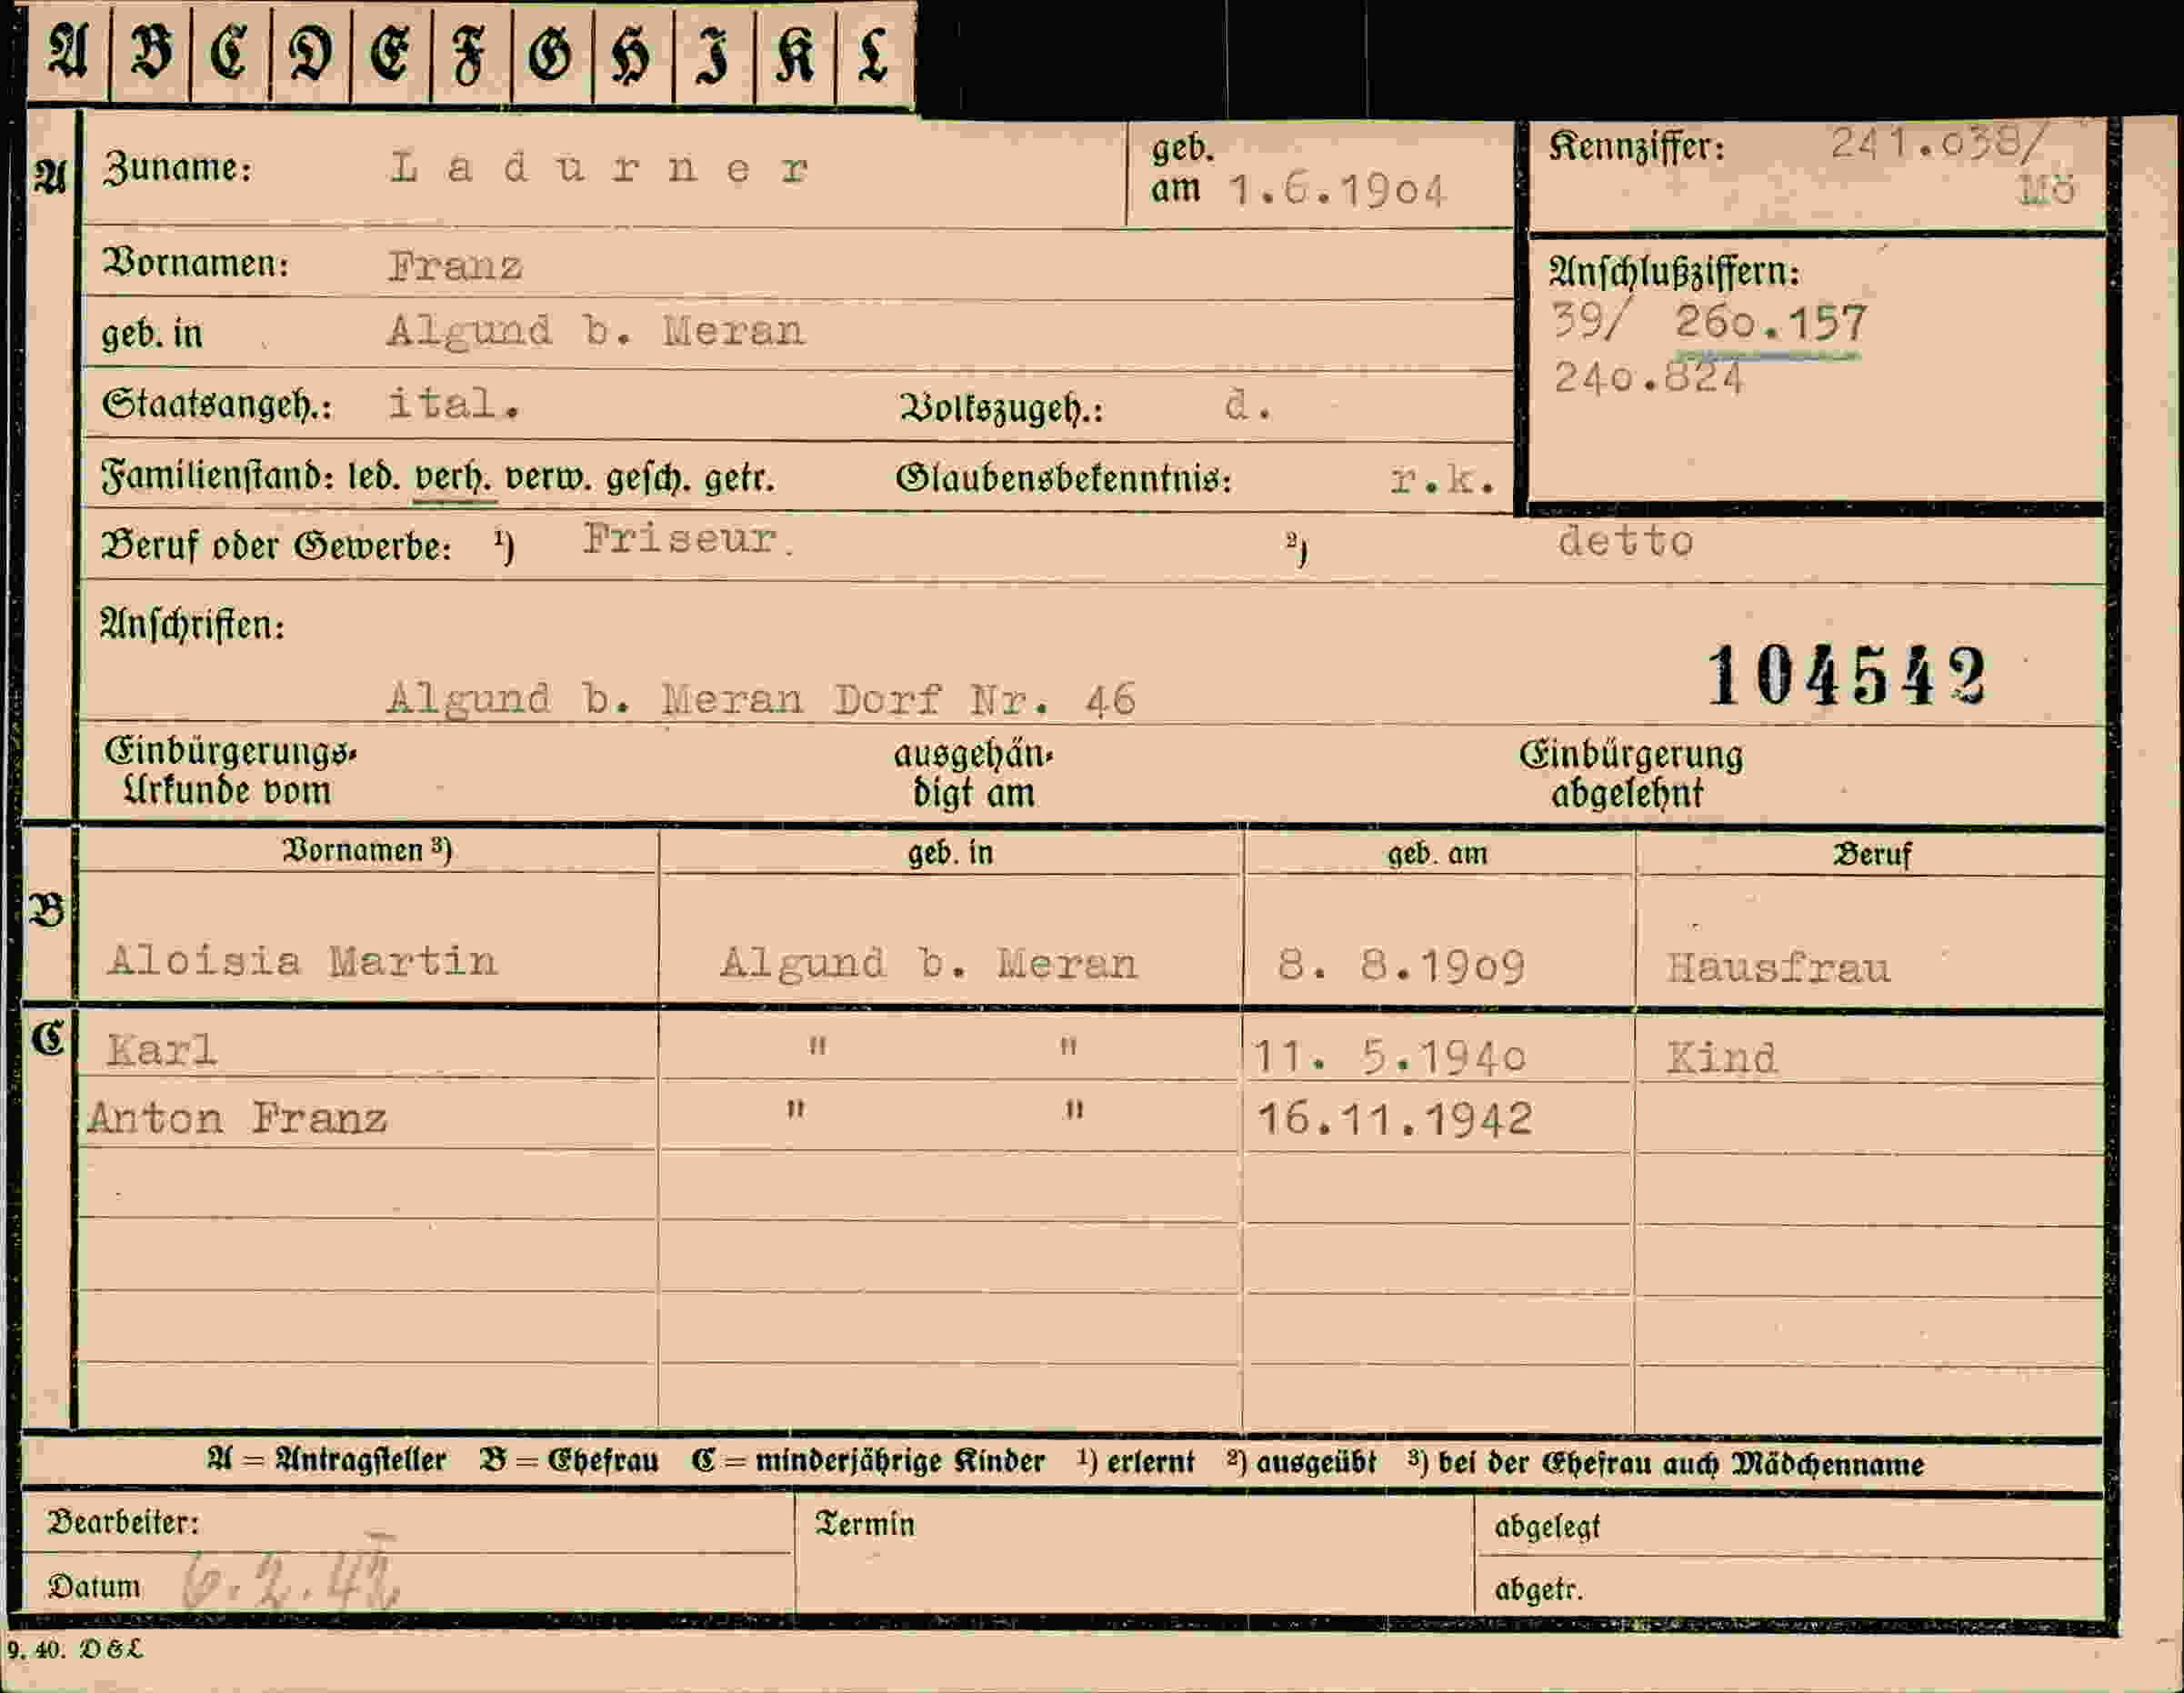 A B C D E F G H I K L
A Zuname: Ladurner geb. am 1.6.1904 Kennziffer: 241.038/ Mö
Vornamen: Franz
Anschlußziffern:
geb. in Algund b. Meran 39/ 260.157
240.824
Staatsangeh.: ital. Volkszugeh.: d.
Familienstand: led. verh. verw. gesch. getr. Glaubensbekenntnis: r.k.
Beruf oder Gewerbe: ¹) Friseur. ²) detto
Anschriften:
104542
Algund b. Meran Dorf Nr. 46
Einbürgerungs- ausgehän- Einbürgerung
Urkunde vom digt am abgelehnt
Vornamen ³) geb. in geb. am Beruf
B
Aloisia Martin Algund b. Meran 8. 8.1909 Hausfrau
C Karl " " 11. 5.1940 Kind
Anton Franz " " 16.11.1942
A = Antragsteller B = Ehefrau C = minderjährige Kinder ¹) erlernt ²) ausgeübt ³) bei der Ehefrau auch Mädchenname
Bearbeiter: Termin abgelegt
Datum 6.2.42 abgetr.
9. 40. D & L